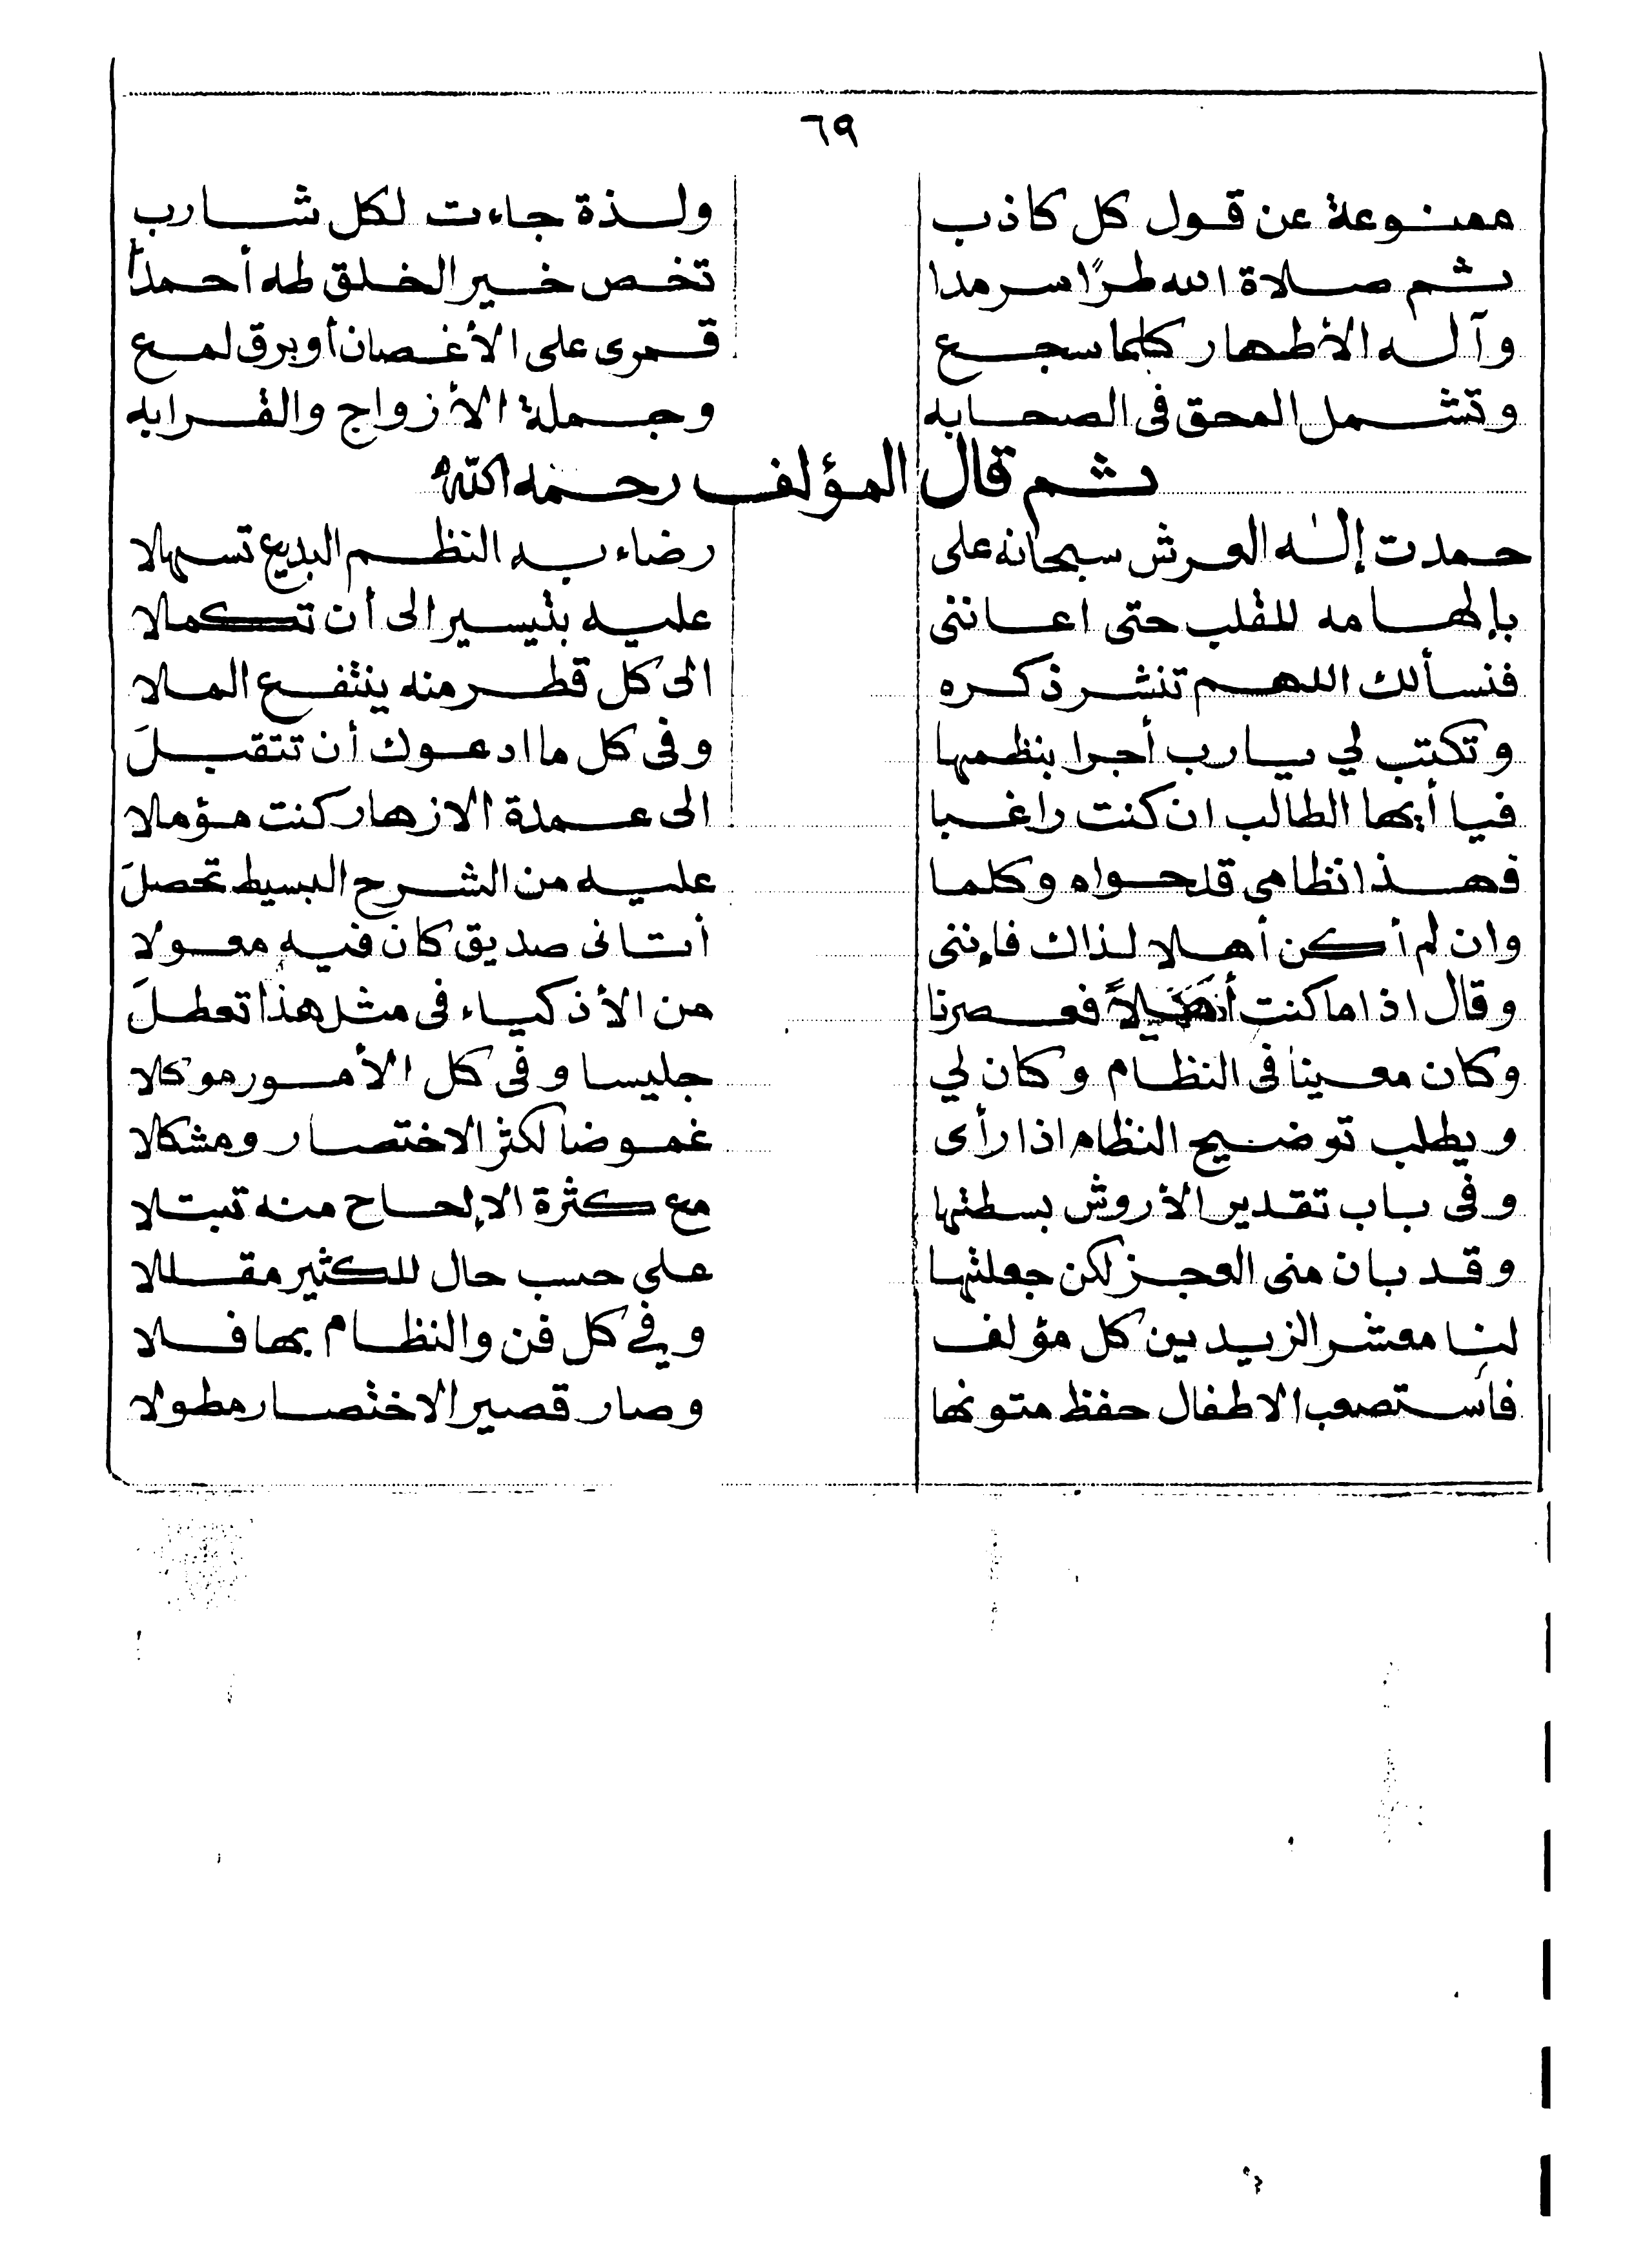 ٦٩
ممنوعة عن قول كل كاذب ولذة جاءت لكل شارب
ثم صلاة الله طرًا سرمدا تخص خير الخلق طه أحمدا
وآله الأطهار كلما سجع قمرى على الأغصان أو برق لمع
وتشمل المحق فى الصحابه وجملة الأزواج والقرابه
ثم قال المؤلف رحمه الله
حمدت إله العرش سبحانه على رضاء به النظم البديع تسهلا
بإلهامه للقلب حتى اعاننى عليه بتيسير الى أن تكملا
فنسألك اللهم تنشر ذكره الى كل قطر منه ينتفع الملا
وتكتب لي يارب أجرا بنظمها وفى كل ما ادعوك أن تتقبلَ
فيا أيها الطالب ان كنت راغبا الى عمدة الازهار كنت مؤملا
فهذا نظامى قد حواه وكلما عليه من الشرح البسيط تحصلَ
وان لم أكن أهلا لذاك فإننى أتانى صديق كان فيه معولا
وقال اذا ما كنت فعصرنا من الأذكياء فى مثل هذا تعطلَ
وكان معينا فى النظام وكان لي جليسا وفى كل الأمور موكلا
ويطلب توضيح النظام اذا رأى غموضا لكثر الاختصار ومشكلا
وفى باب تقدير الأروش بسطتها مع كثرة الإلحاح منه تبتلا
وقد بان منى العجز لكن جعلتها على حسب حال للكثير مقللا
لنا معشر الزيدين كل مؤلف وفي كل فن والنظام بها فلا
فأستصعب الاطفال حفظ متونها وصار قصير الاختصار مطولا